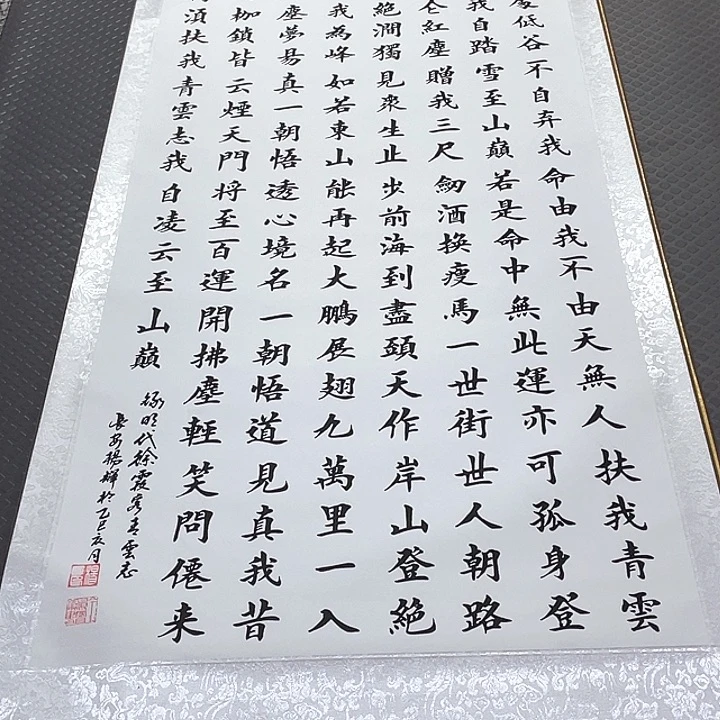 低谷不自弃我命由我不由天無人扶我青雲
我自踏雪至山巔若是命中無此運亦可孤身登
仑紅塵贈我三尺劒酒換瘦馬一世街世人朝路
絕澗獨見衆生止步前海到盡頭天作岸山登絕
我為峰如若東山能再起大鵬展翅九萬里一入
塵夢易真一朝悟透心境名一朝悟道見真我昔
枷鎖皆云煙天門将至百運開拂塵輕笑問僊来
須扶我青雲志我自凌云至山巔
錄明代徐霞客青雲志
長安楊輝於乙巳亥月